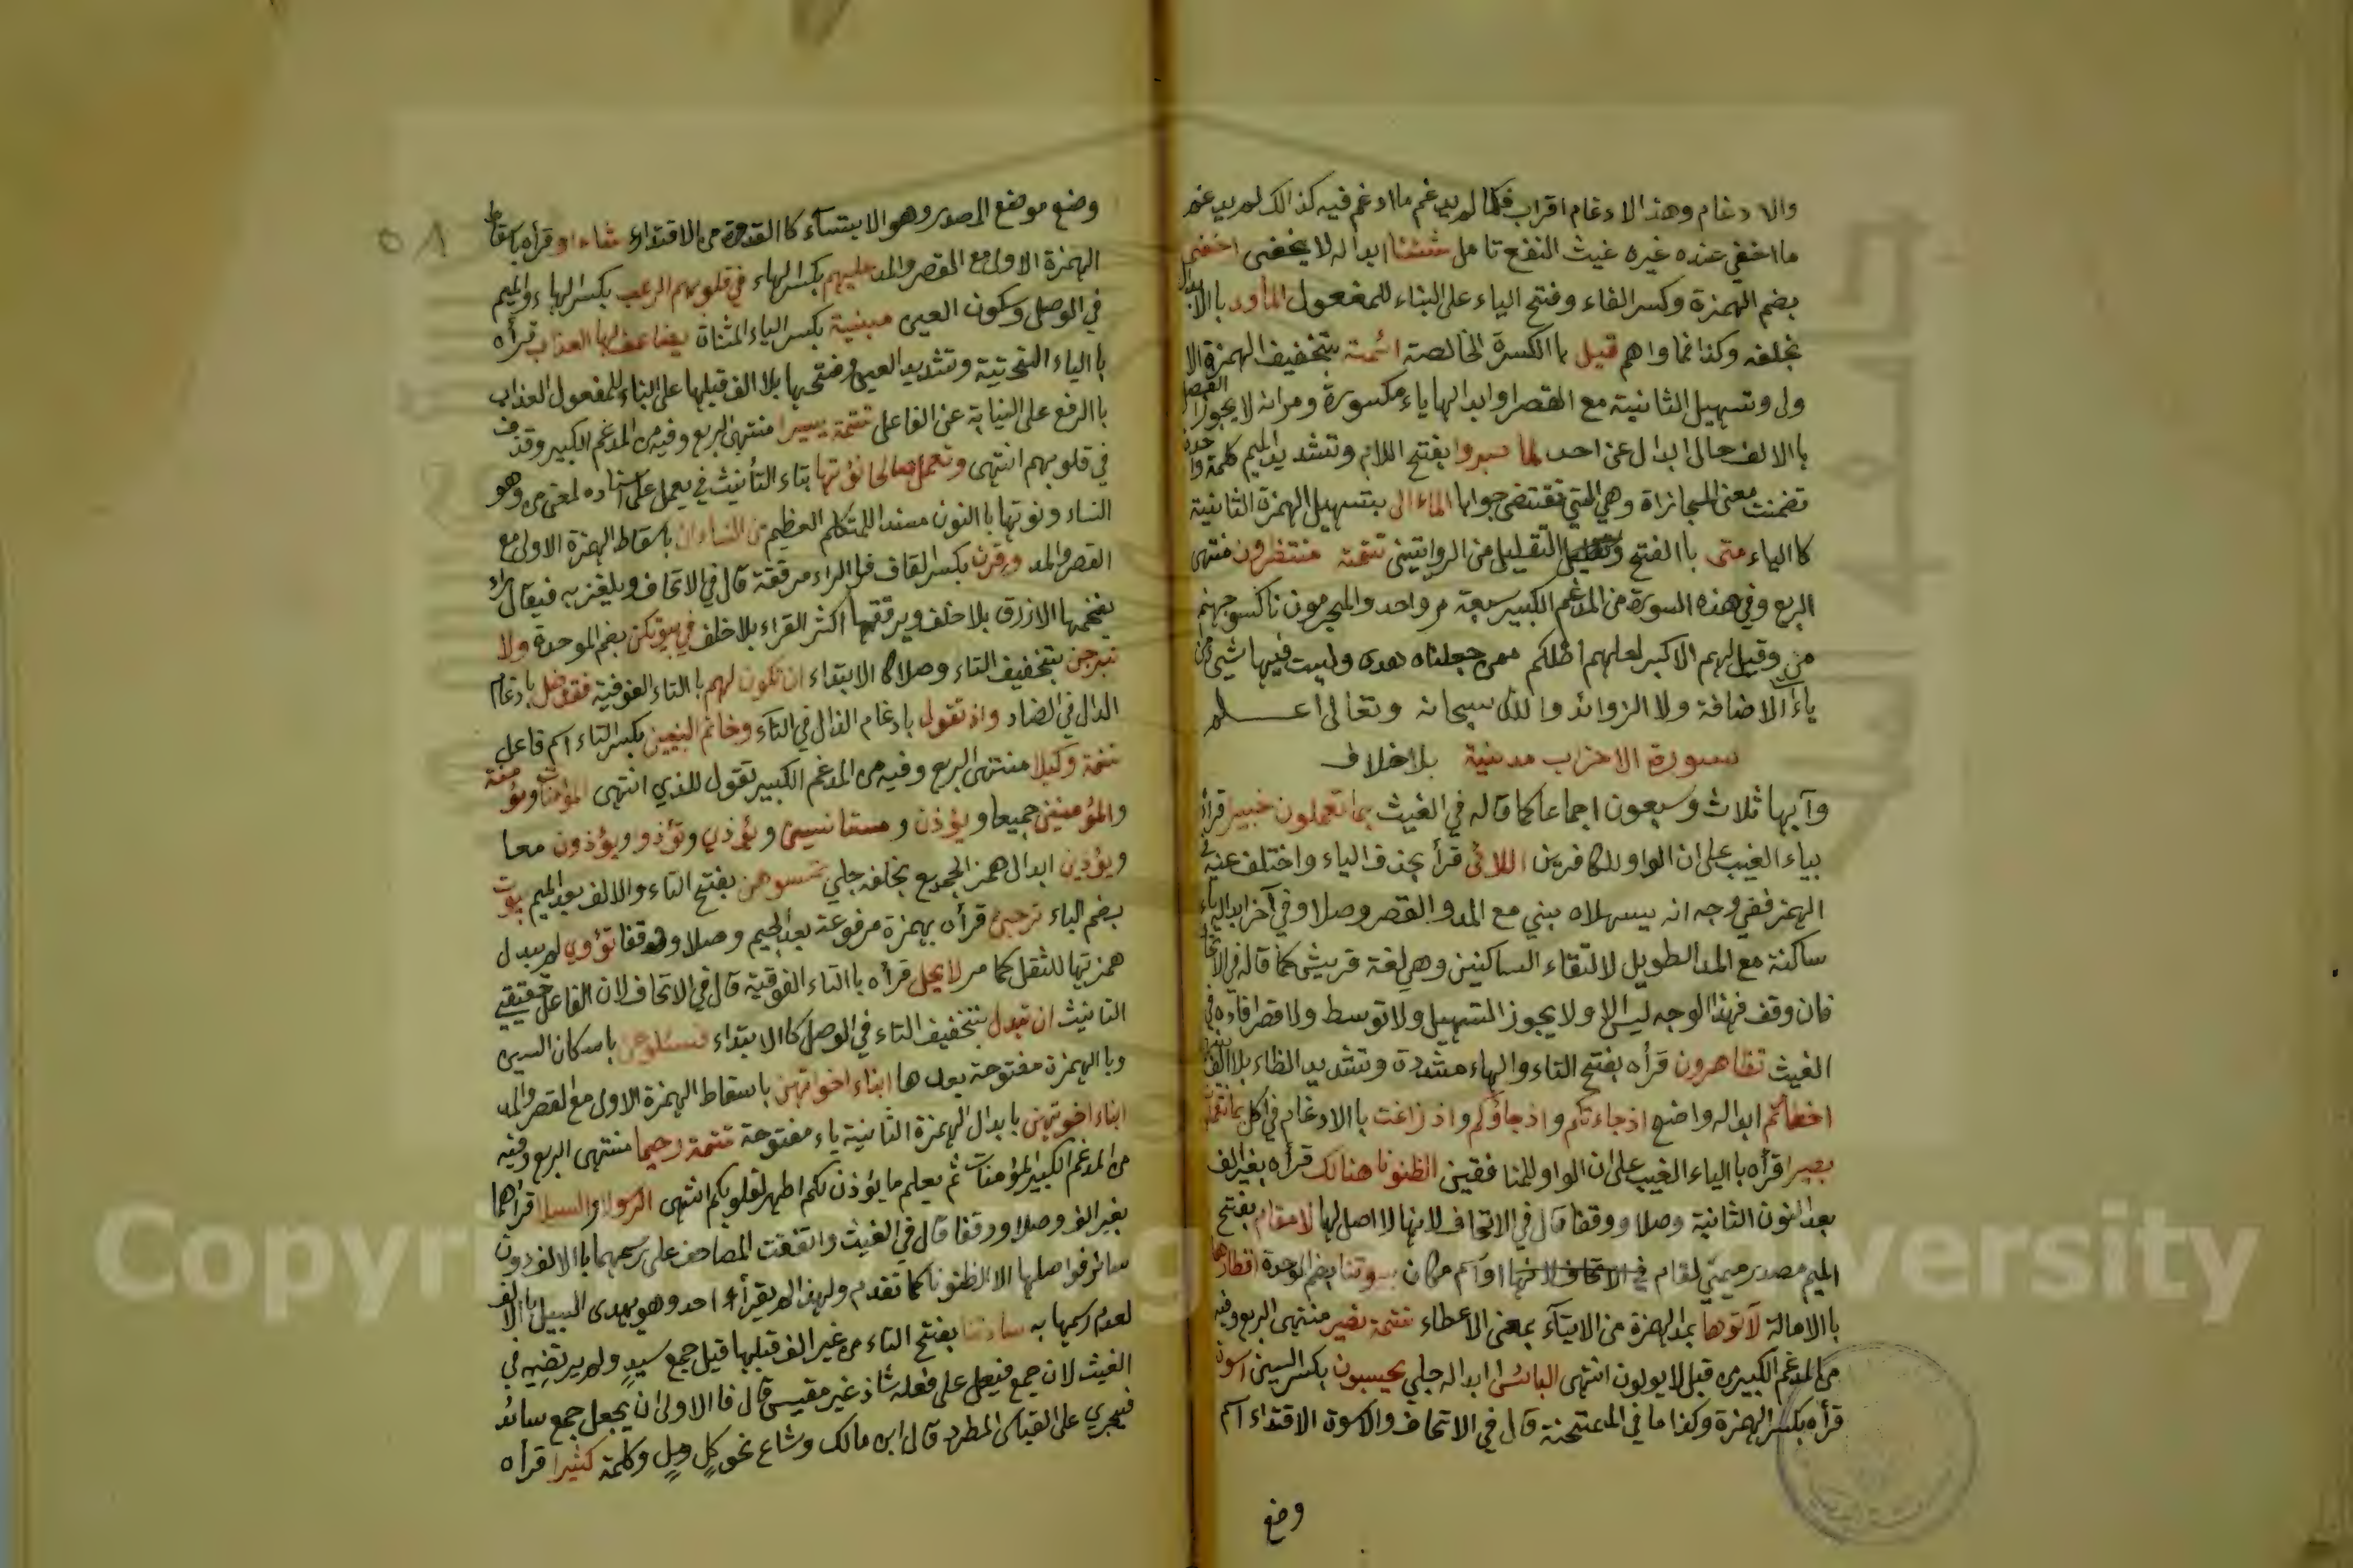 والادغام وهذا الادغام اقراب فكما لم يدغم ما ادغم فيه كذالك لم يدغم
ما اخفي عنده غيره غيث النفع تامل شئنا ابداله لا يخفى اخفي
بضم الهمزة وكسر الفاء وفتح الياء على البناء للمفعول الماوى باالابدال
بخلفه وكذا فماواهم قيل باالكسرة الخالصة ائمة بتخفيف الهمزة الا
ولى وتسهيل الثانية مع القصر اوابدالها ياء مكسورة ومر انه لا يجوز الفصل
باالالف حال ابدال عن احد لما صبروا بفتح اللام وتشديد الميم كلمة واحدة
تضمنت معنى المجازاة وهي التي تقتضي جوابا الماء الى بتسهيل الهمزة الثانية
كاالياء متى باالفتح والتقليل من الروايتين تتمة منتظرون منتهى
الربع وفي هذه السورة من المدغم الكبير سبعة مر واحد والمجرمون ناكسو جهنم
من وقيل لهم الاكبر لعلهم اظلم ممن جعلناه هدى وليست فيها شيئ من
ياءآ الاضافة ولا الزوائد والله سبحانه وتعالى اعلم
سورة الاحزاب مدنية بلاخلاف
وآيها ثلاث وسبعون اجماعا كما قاله في الغيث بما تعملون خبيرا قرأه
بياء الغيب على ان الواو للكافرين اللائى قرأ بحذف الياء واختلف عنه في
الهمز ففي وجه انه يسهلاه بيني مع المد والقصر وصلا وفي آخر ابداله ياء
ساكنة مع المد الطويل لالتقاء الساكنين وهي لغة قريش كما قاله في الاتحاف
فان وقف فهذا الوجه ليس الا ولا يجوز التسهيل ولا توسط ولا قصر افاده في
الغيث تظاهرون قرأه بفتح التاء والهاء مشددة وتشديد الظاء بلا الف
اخطأتم ابداله واضح اذ جاءتكم واذ جاؤكم واذ زاغت باالادغام في اكل بما تعملون
بصيرا قرأه باالياء الغيب على ان الواو للمنافقين الظنونا هنالك قرأه بغير الف
بعد النون الثانية وصلا ووقفا قال في الاتحاف لانها لا اصل لها لا مقام بفتح
الميم مصدر ميمي لقام اواسم مكان بيوتنا بضم الموحدة اقطارها
باالامالة لآتوها بمد الهمزة من الايتآء بمعنى الاعطاء تتمة نصيرا منتهى الربع وفيه
من المدغم الكبير من قبل لا يولون انتهى البائس ابداله جلي يحسبون بكسر السين اسوة
قرأه بكسر الهمزة وكذا ما في الممتحنة قال في الاتحاف والاسوة الاقتداء اسم
وضع
٥٨
وضع موضع المصدر وهو الايتسآء كاالقدوة من الاقتداء شاء او قرأه باسقاط
الهمزة الاولى مع القصر والمد عليهم بكسر الهاء في قلوبهم الرعب بكسر الهاء والميم
في الوصل وسكون العين مبينة بكسر الياء المثناة يضاعف لها العذاب قرأه
باالياء التحتية وتشديد العين وفتحها بلا الف قبلها على البناء للمفعول العذاب
باالرفع على النيابة عن الفاعل تتمة يسيرا منتهى الربع وفيه من المدغم الكبير وقذف
في قلوبهم انتهى وتعمل صالحا نؤتها بتاء التأنيث في يعمل على اسناده لمعنى من وهو
النساء ونوتها باالنون مسندا للمتكلم العظيم من النساء ان باسقاط الهمزة الاولى مع
القصر والمد وقرن بكسر القاف فاالراء مرققة قال في الاتحاف ويلغز به فيقال راء
يفخمها الازرق بلا خلف ويرققها اكثر القراء بلا خلف في بيوتكن بضم الموحدة ولا
تبرجن بتخفيف التاء وصلا كاالابتداء ان تكون لهم باالتاء الفوقية فقد ضل بادغام
الدال في الضاد واذ تقول بادغام الذال في التآء وخاتم النبيين بكسر التاء اسم فاعل
تتمة وكيلا منتهى الربع وفيه من المدغم الكبير تقول للذي انتهى المؤمنات ومؤمنة
والمؤمنين جميعا ويؤذن ومستانسين ويؤذي وتؤذوا ويؤذون معا
ويؤذين ابدال همز الجميع بخلفه جلي تمسوهن بفتح التاء والالف بعد الميم بيوت
بضم الباء ترجئ قرأه بهمزة مرفوعة بعد الجيم وصلا ووقفا تؤوي لم يبدل
همزتها للثقل كما مر لا يحل قرأه باالتاء الفوقية قال في الاتحاف لان الفاعل حقيقي
التانيث ان تبدل بتخفيف التاء في الوصل كاالابتداء فسئلوهن باسكان السين
وباالهمزة مفتوحة بعدها ابناء اخواتهن باسقاط الهمزة الاولى مع القصر والمد
ابناء اخوتهن بابدال الهمزة الثانية ياء مفتوحة تتمة رحيما منتهى الربع وفيه
من المدغم الكبير المؤمنات ثم يعلم ما يؤذن لكم اطهر لقلوبكم انتهى الرسولا والسبيلا قرأهما
بغير الف وصلا ووقفا قال في الغيث واتفقت المصاحف على رسمهما باالالف دون
سائر فواصلها الا الظنونا كما تقدم ولهذا لم يقرأ احد وهو يهدى السبيل باالالف
لعدم رسمها به سادتنا بفتح التاء من غير الف قبلها قيل جمع سيد ولم يرتضيه في
الغيث لان جمع فيعل على فعلة شاذ غير مقيس قال فاالاولى ان يجعل جمع سائد
فيجري على القياس المطرد قال ابن مالك وشاع نحو كل وبل وكلمة كثيرا قرأه
Copyright © King Saud University